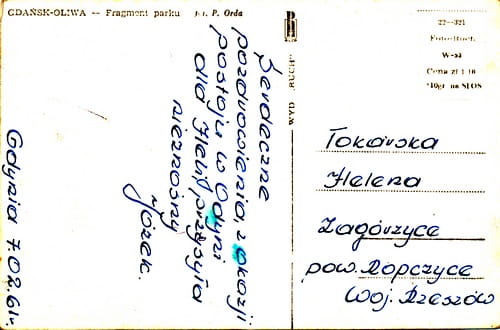 GDAŃSK-OLIWA — Fragment parku fot. P. Orda
Serdeczne
pozdrowienia z okazji
postoju w Gdyni
dla Heli przysyła
nieznośny
Józek.
Gdynia 7.02.61r.
WYD. „RUCH"
22—321
Foto-Ruch
W-wa
Cena zł 1.10
+10gr na SFOS
Tokarska
Helena
Zagórzyce
pow. Ropczyce
Woj. Rzeszów